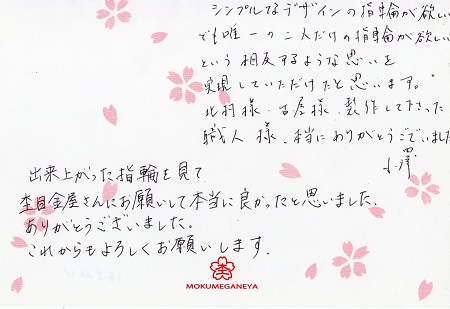 シンプルなデザインの指輪が欲しい
でも唯一の二人だけの指輪が欲しい
という相反するような思いを
実現していただけたと思います。
北村様、古屋様、製作して下さった
職人様、本当にありがとうございました
小澤
出来上がった指輪を見て
杢目金屋さんにお願いして本当に良かったと思いました.
ありがとうございました。
これからもよろしくお願いします.
MOKUMEGANEYA